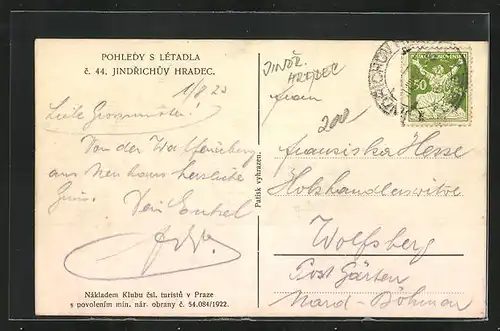 POHLEDY S LÉTADLA
č. 44. JINDŘICHŮV HRADEC.
1/8 23
Liebe Grossmutter!
Von der
aus Neuhaus herzliche
Dein Enkel
Nákladem Klubu čsl. turistů v Praze
s povolením min. nár. obrany č. 54.084/1922.
Patisk vyhrazen.
JINDŘ.
HRADEC
50
Frau
200
Franziska Hesse
Holzhändlerswitwe
Wolfsberg
Post Gärten
Nord-Böhmen